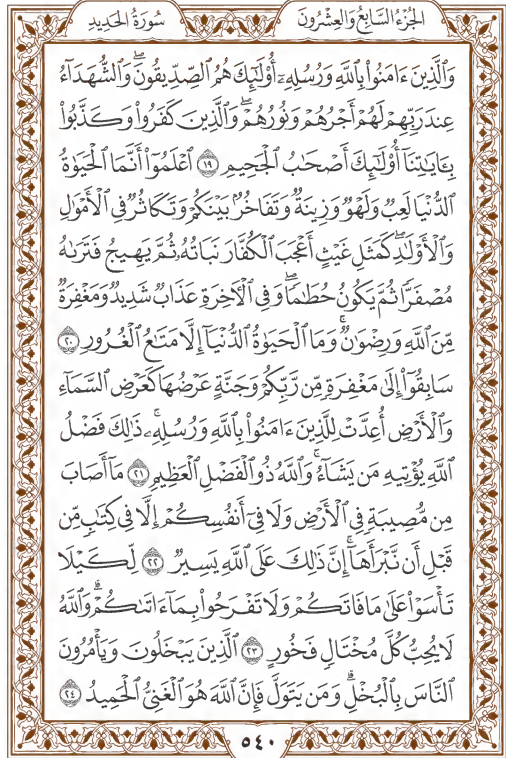 سُورَةُ الحَدِيدِ
الجُزْءُ السَّابِعُ وَالعِشْرُونَ
وَالَّذِينَ ءَامَنُواْ بِاللَّهِ وَرُسُلِهِۦٓ أُوْلَٰٓئِكَ هُمُ الصِّدِّيقُونَۖ وَالشُّهَدَآءُ
عِندَ رَبِّهِمْ لَهُمْ أَجْرُهُمْ وَنُورُهُمْۖ وَالَّذِينَ كَفَرُواْ وَكَذَّبُواْ
بِـَٔايَٰتِنَآ أُوْلَٰٓئِكَ أَصْحَٰبُ الْجَحِيمِ ١٩ اعْلَمُوٓاْ أَنَّمَا الْحَيَوٰةُ
الدُّنْيَا لَعِبٌ وَلَهْوٌ وَزِينَةٌ وَتَفَاخُرٌۢ بَيْنَكُمْ وَتَكَاثُرٌ فِي الْأَمْوَٰلِ
وَالْأَوْلَٰدِۖ كَمَثَلِ غَيْثٍ أَعْجَبَ الْكُفَّارَ نَبَاتُهُۥ ثُمَّ يَهِيجُ فَتَرَىٰهُ
مُصْفَرًّا ثُمَّ يَكُونُ حُطَٰمًاۖ وَفِي الْأٓخِرَةِ عَذَابٌ شَدِيدٌ وَمَغْفِرَةٌ
مِّنَ اللَّهِ وَرِضْوَٰنٌۚ وَمَا الْحَيَوٰةُ الدُّنْيَآ إِلَّا مَتَٰعُ الْغُرُورِ ٢٠
سَابِقُوٓاْ إِلَىٰ مَغْفِرَةٍ مِّن رَّبِّكُمْ وَجَنَّةٍ عَرْضُهَا كَعَرْضِ السَّمَآءِ
وَالْأَرْضِ أُعِدَّتْ لِلَّذِينَ ءَامَنُواْ بِاللَّهِ وَرُسُلِهِۦۚ ذَٰلِكَ فَضْلُ
اللَّهِ يُؤْتِيهِ مَن يَشَآءُۚ وَاللَّهُ ذُو الْفَضْلِ الْعَظِيمِ ٢١ مَآ أَصَابَ
مِن مُّصِيبَةٍ فِي الْأَرْضِ وَلَا فِيٓ أَنفُسِكُمْ إِلَّا فِي كِتَٰبٍ مِّن
قَبْلِ أَن نَّبْرَأَهَآۚ إِنَّ ذَٰلِكَ عَلَى اللَّهِ يَسِيرٌ ٢٢ لِّكَيْلَا
تَأْسَوْاْ عَلَىٰ مَا فَاتَكُمْ وَلَا تَفْرَحُواْ بِمَآ ءَاتَىٰكُمْۗ وَاللَّهُ
لَا يُحِبُّ كُلَّ مُخْتَالٍ فَخُورٍ ٢٣ الَّذِينَ يَبْخَلُونَ وَيَأْمُرُونَ
النَّاسَ بِالْبُخْلِۗ وَمَن يَتَوَلَّ فَإِنَّ اللَّهَ هُوَ الْغَنِيُّ الْحَمِيدُ ٢٤
٥٤٠